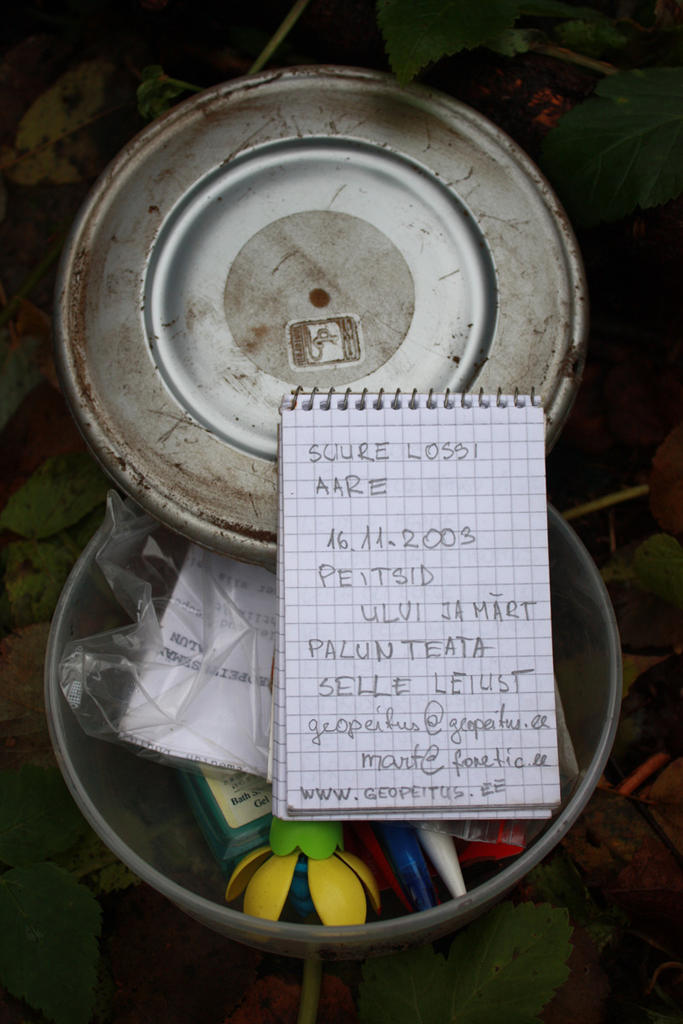 SUURE LOSSI
AARE
16.11.2003
PEITSID
ULVI JA MÄRT
PALUN TEATA
SELLE LEIUST
geopeitus@geopeitus.ee
mart@fonetic.ee
WWW.GEOPEITUS.EE
Bath
Gel